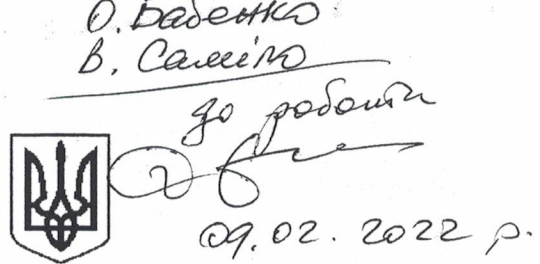 О. Бабенко
В. Саміло
до роботи
09.02.2022 р.